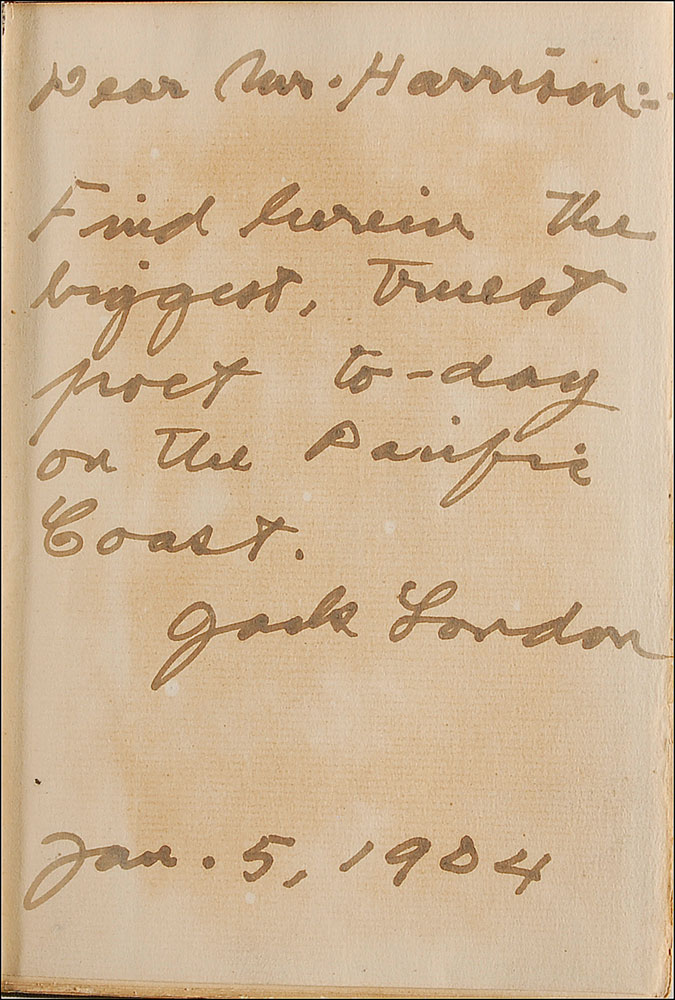 Dear Mr. Harrison:-
Find herein the
biggest, truest
poet to-day
on the Pacific
Coast.
Jack London
Jan. 5, 1904